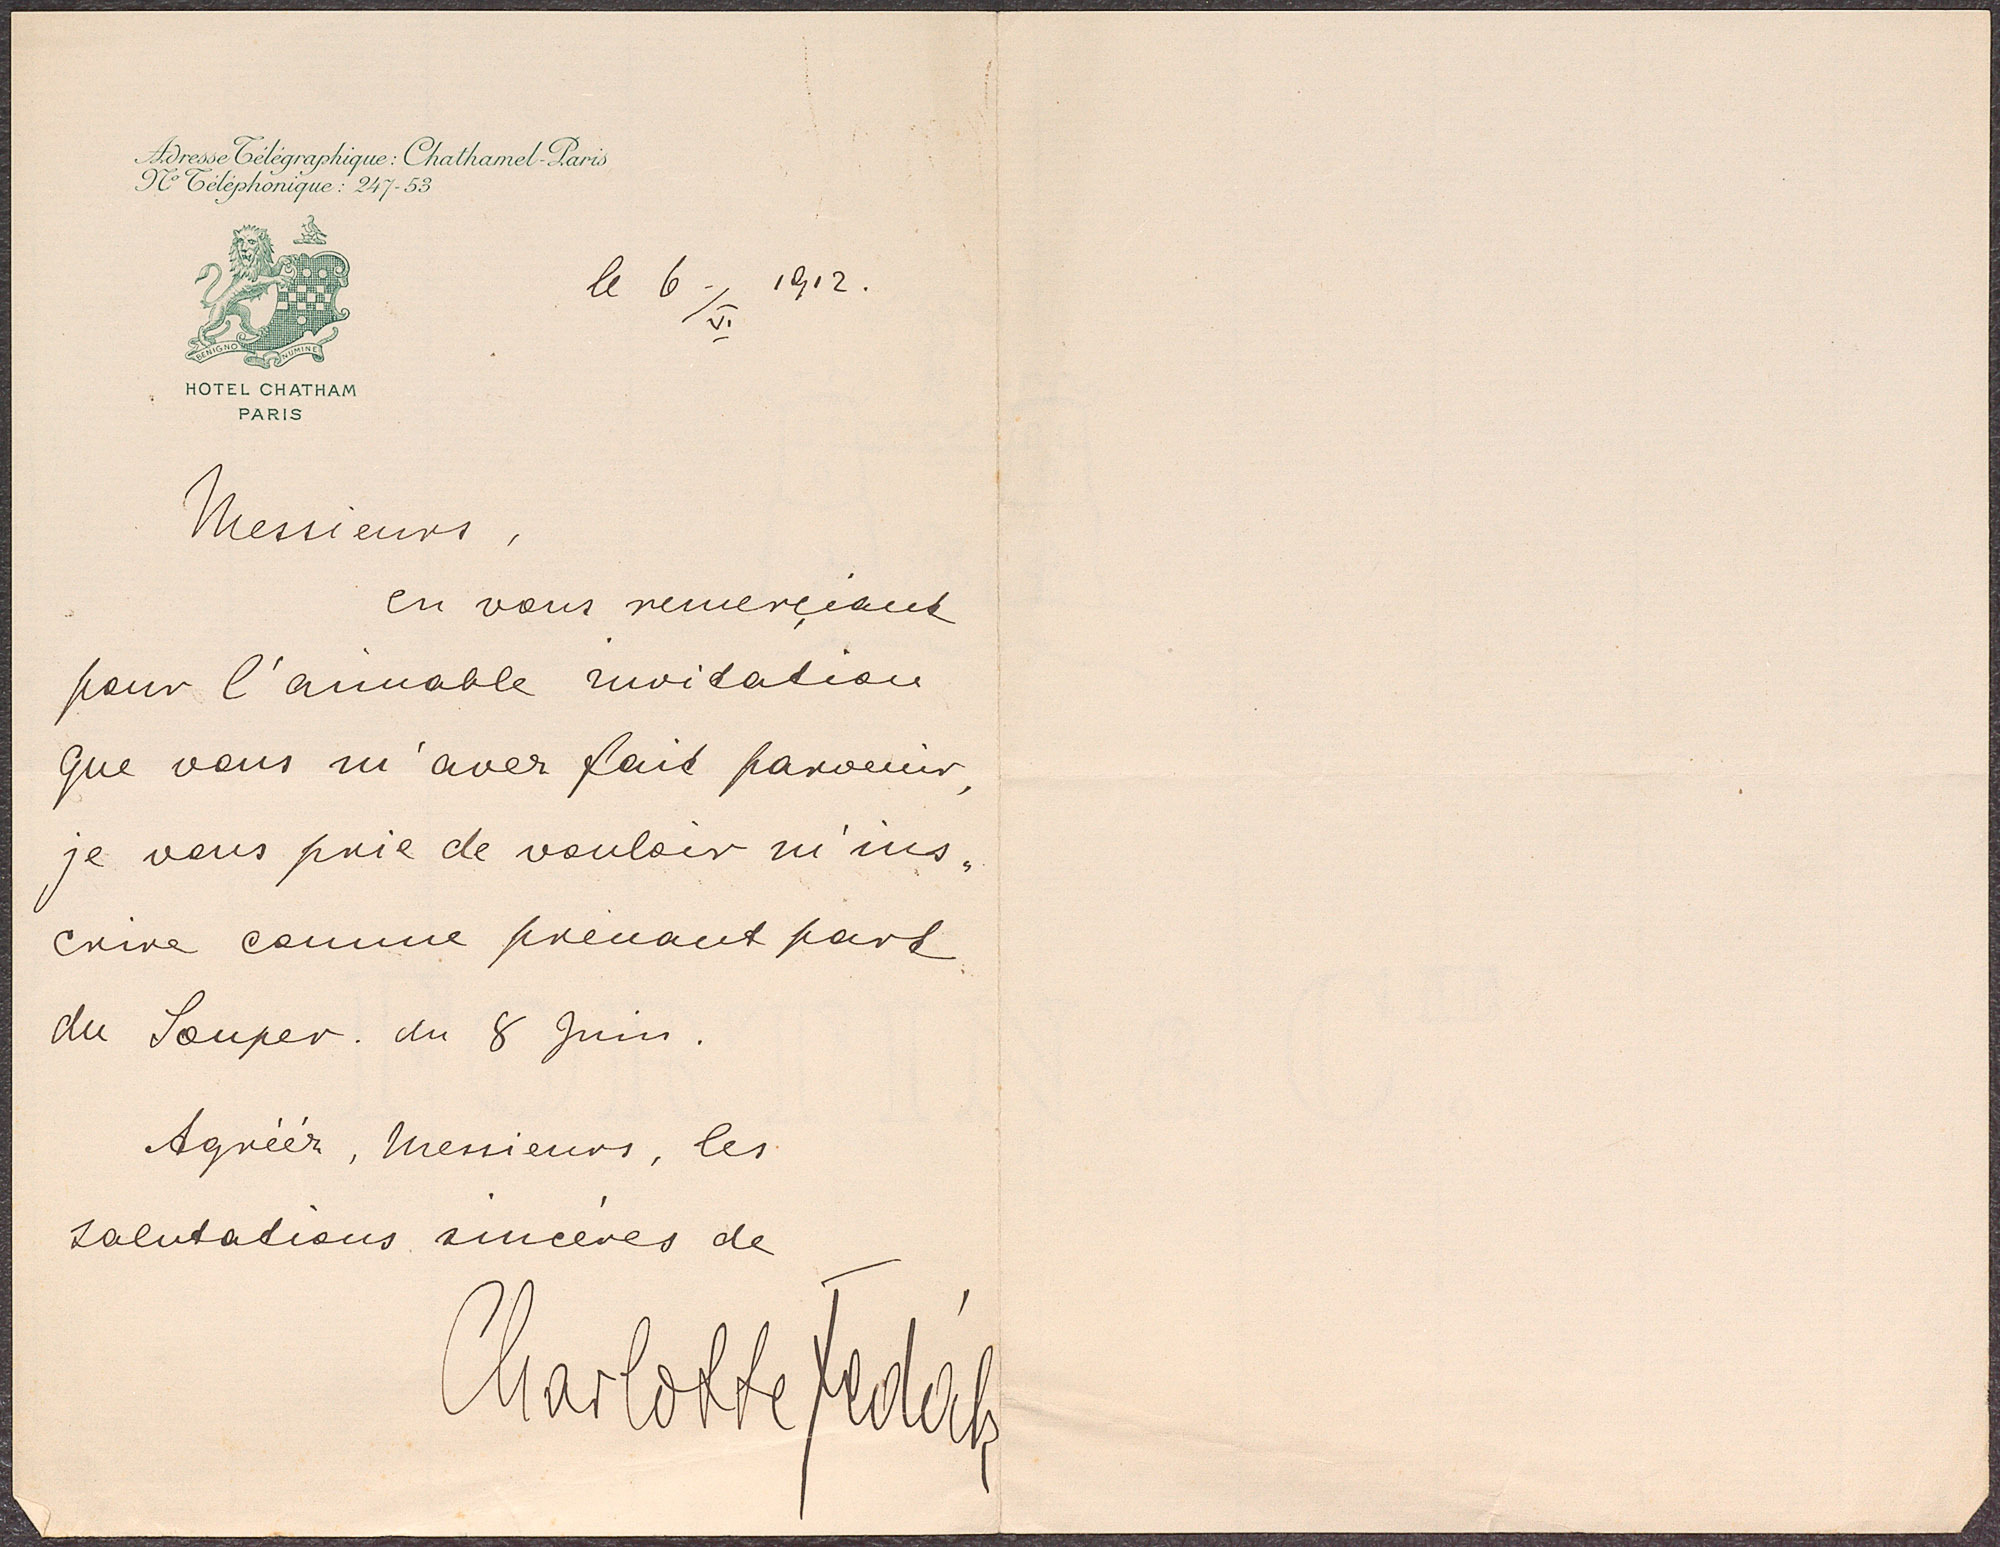 Adresse Télégraphique: Chathamel-Paris
No Téléphonique: 247-53
BENIGNO NUMINE
HOTEL CHATHAM
PARIS
le 6-/VI 1912.
Messieurs,
en vous remerçiant
pour l'aimable invitation
que vous m'avez fait parvenir,
je vous prie de vouloir m'ins„
crire comme prenant part
du Souper. du 8 Juin.
Agréér, Messieurs, les
salutations sincéres de
Charlotte Fedák